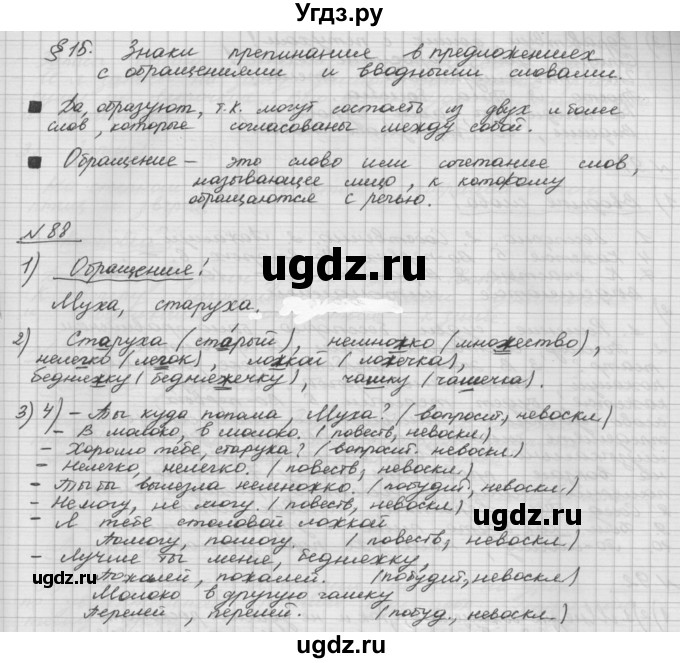 Угдз.ру
§15. Знаки препинания в предложениях
с обращениями и вводными словами.
Да, образуют, т.к. могут состоять из двух и более
слов, которые согласованы между собой.
Обращение – это слово или сочетание слов,
называющее лицо, к которому
обращаются с речью.
N 88
ugdz.ru
1) Обращения!
Муха, старуха.
2) Старуха (старый), немножко (множество),
нелегко (легок), ложкой (ложечка),
бедняжку (бедняжечку), чашку (чашечка).
3) 4) – Ты куда попала, Муха? (вопросит, невоскл.)
– В молоко, в молоко. (повеств, невоскл.)
– Хорошо тебе, старуха? (вопросит. невоскл.)
– Нелегко, нелегко. (повеств, невоскл.)
– Ты бы вылезла немножко. (побудит, невоскл.)
– Не могу, не могу. (повеств, невоскл.)
ugdz.ru
– Я тебе столовой ложкой
Помогу, помогу. (повеств, невоскл.)
– Лучше ты меня, бедняжку,
Пожалей, пожалей. (побудит, невоскл.)
Молоко в другую чашку
Перелей, перелей. (побуд., невоскл.)
ugdz.ru